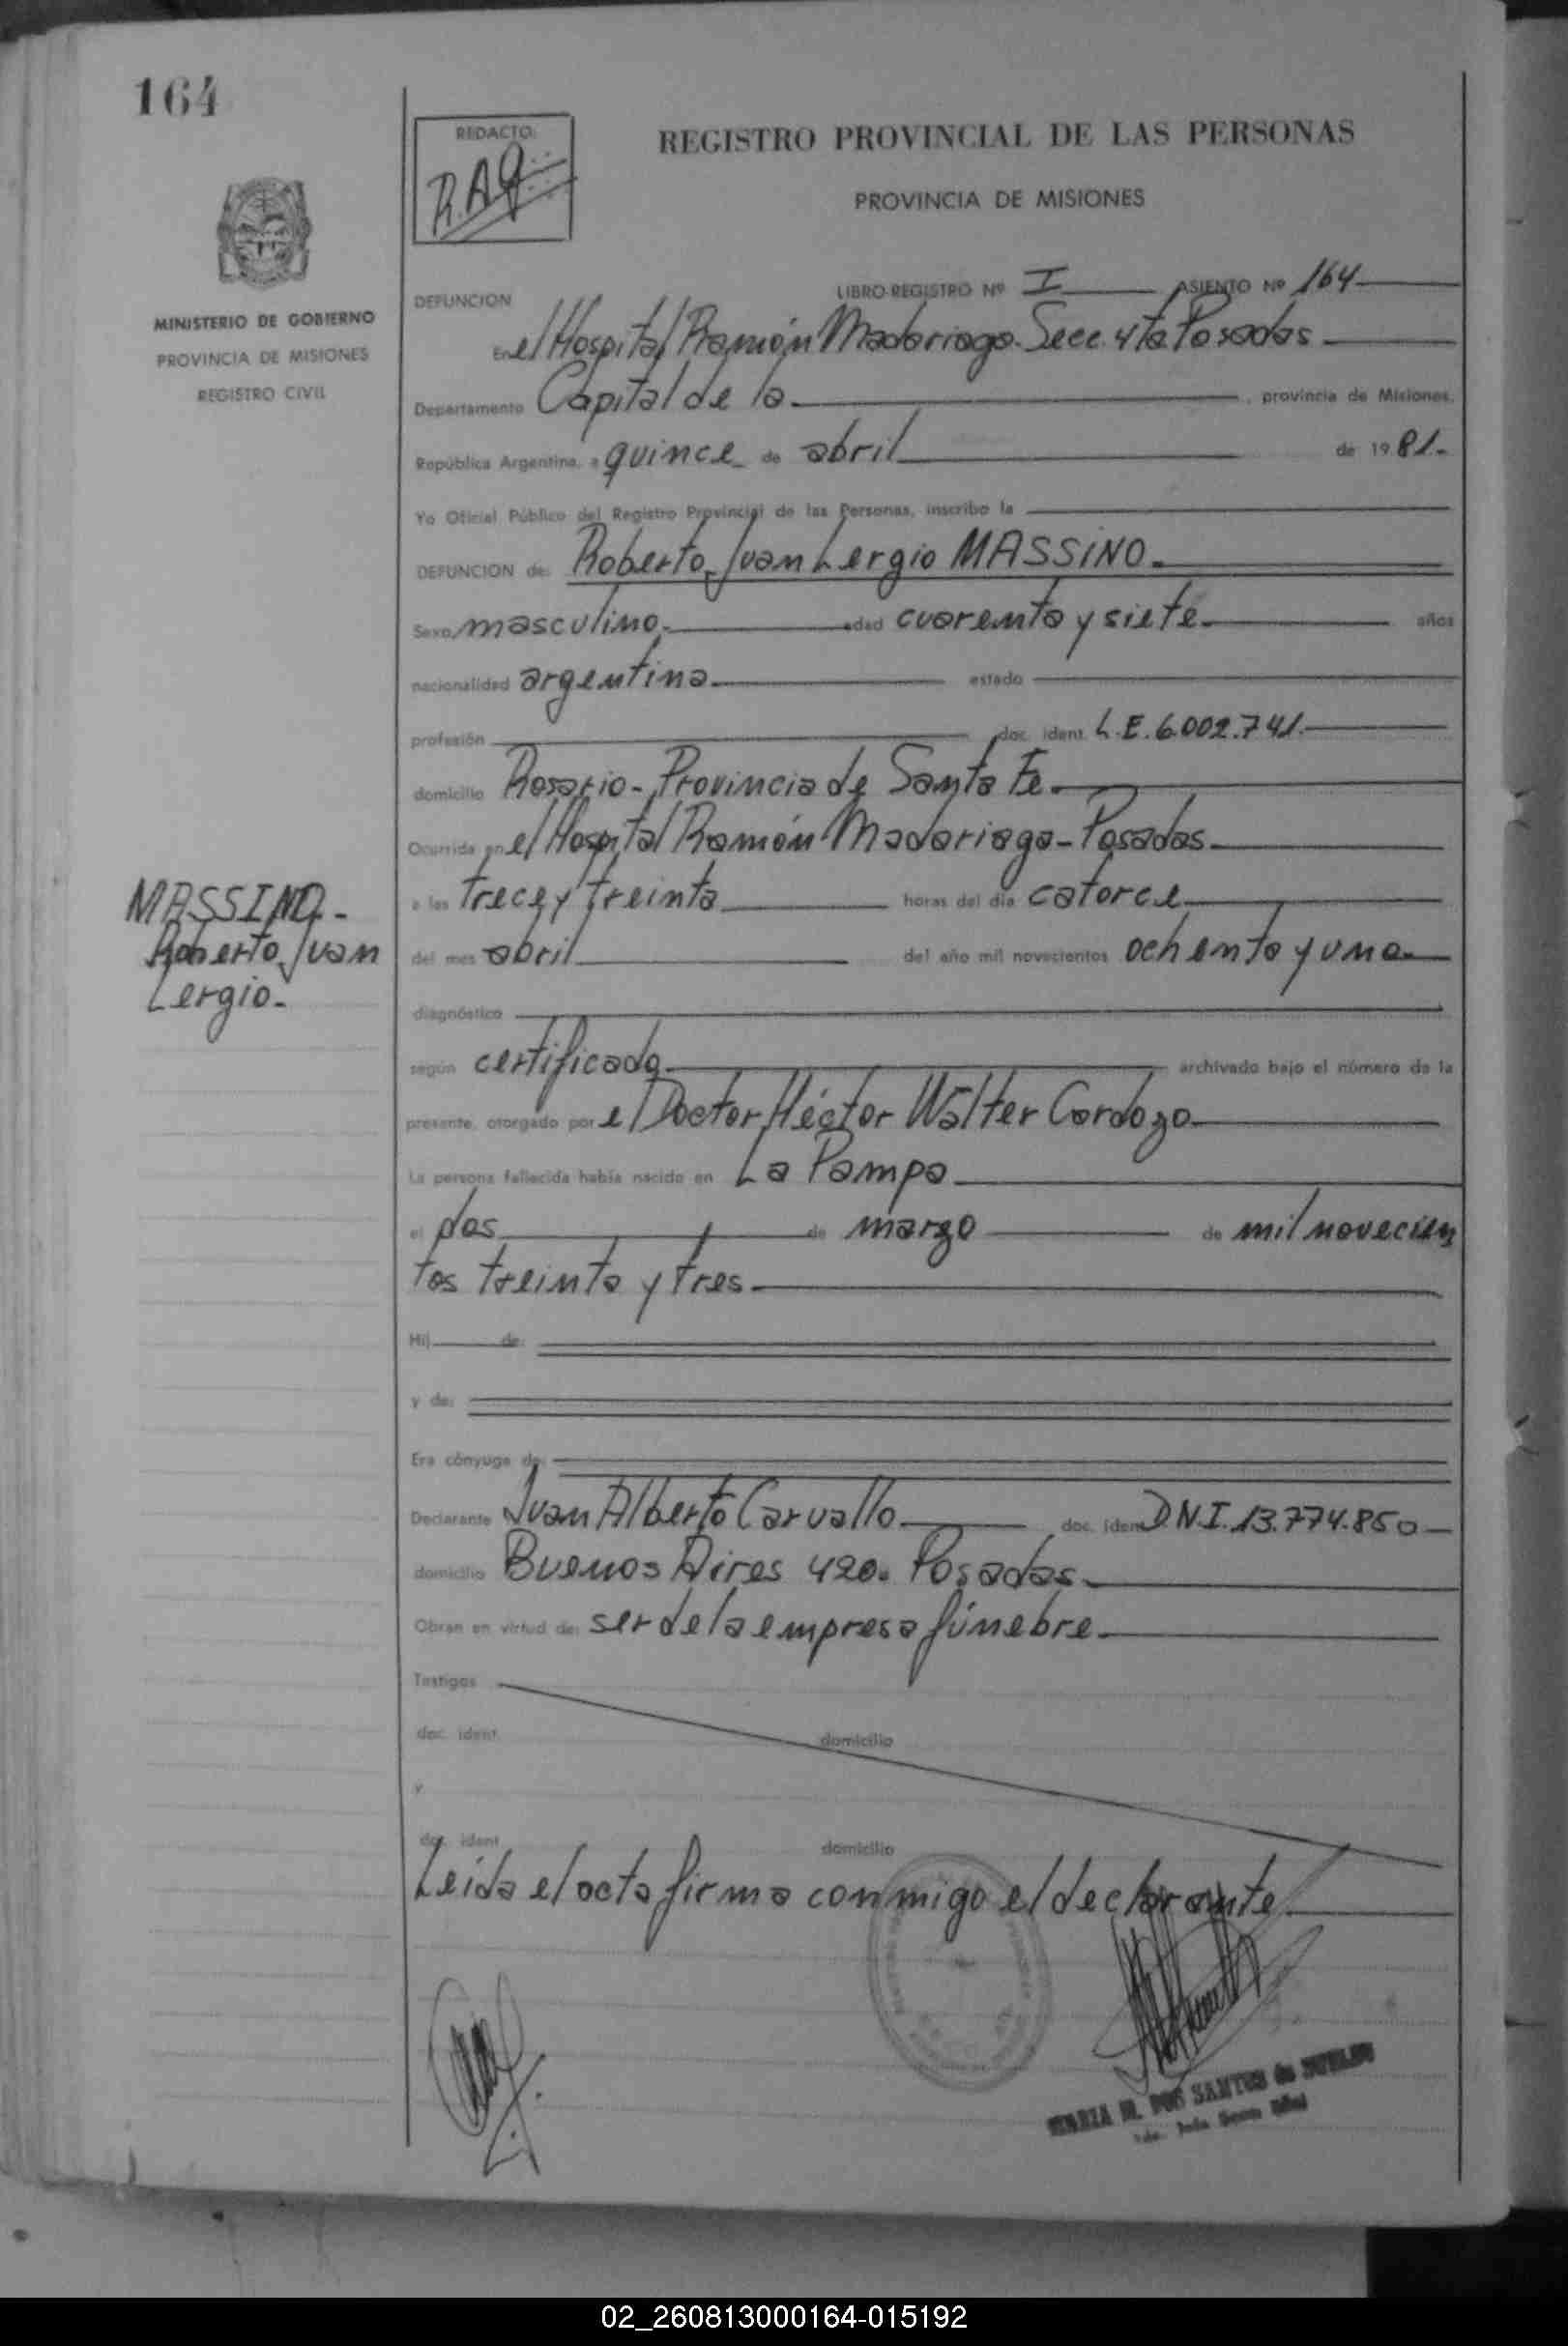 164
REDACTO:
R.A.G.
REGISTRO PROVINCIAL DE LAS PERSONAS
PROVINCIA DE MISIONES
MINISTERIO DE GOBIERNO
PROVINCIA DE MISIONES
REGISTRO CIVIL
DEFUNCION
LIBRO-REGISTRO Nº I ASIENTO Nº 164
En el Hospital Ramón Madariaga. Secc. 4ta Posadas
Departamento Capital de la , provincia de Misiones,
República Argentina, a quince de abril de 1981.
Yo Oficial Público del Registro Provincial de las Personas, inscribo la
DEFUNCION de: Roberto Juan Lergio MASSINO.
Sexo masculino. edad cuarenta y siete años
nacionalidad argentina. estado
profesión doc. ident. L.E. 6.002.741.
domicilio Rosario - Provincia de Santa Fe.
Ocurrida en el Hospital Ramón Madariaga - Posadas.
a las trece y treinta horas del día catorce
del mes abril del año mil novecientos ochenta y uno.
MASSINO.-
Roberto Juan
Lergio.
diagnóstico
según certificado. archivado bajo el número de la
presente, otorgado por el Doctor Héctor Walter Cardozo.
La persona fallecida había nacido en La Pampa
el dos de marzo de mil novecien
tos treinta y tres.
Hij de:
y de:
Era cónyuge de:
Declarante Juan Alberto Carvallo doc. ident. D.N.I. 13.774.850
domicilio Buenos Aires 420. Posadas.
Obran en virtud de: ser de la empresa fúnebre.
Testigos
doc. ident. domicilio
y
doc. ident. domicilio
Leída el acta firma conmigo el declarante
MARIA M. DOS SANTOS de
02_260813000164-015192